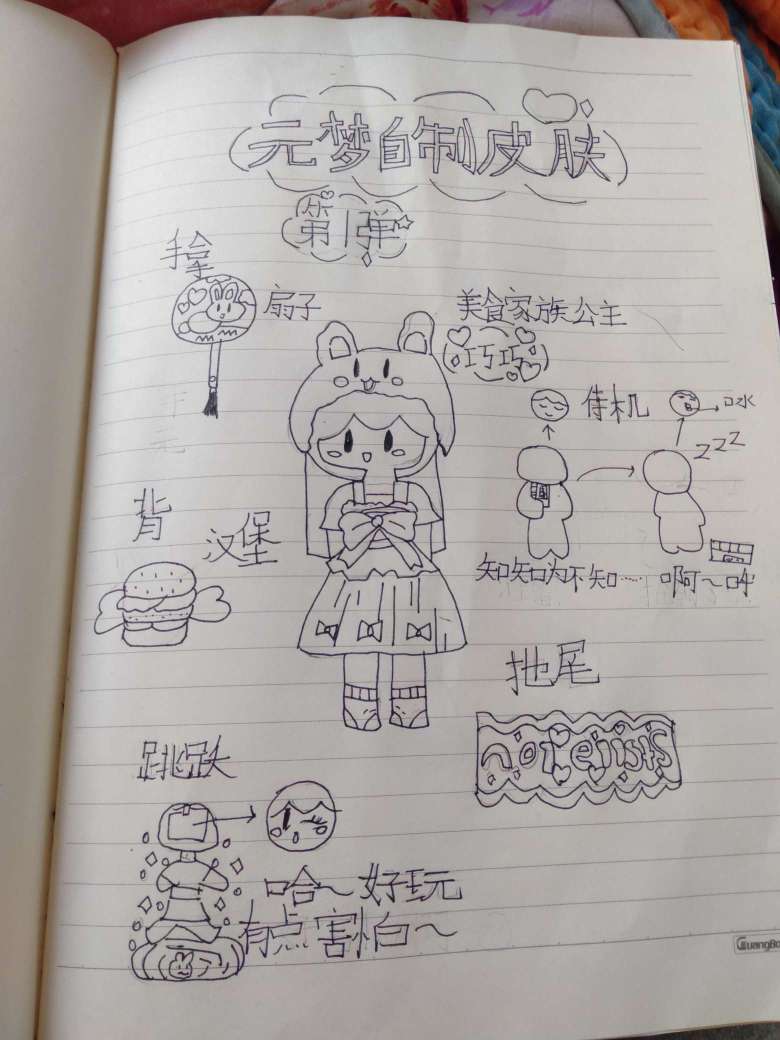 元梦自制皮肤
第1弹
手拿
扇子
美食家族公主
巧巧
待机
口水
zzz
背
汉堡
知知为不知……
啊~哈
拖尾
not exists
跳跃
哈~好玩
有点害怕~
GuangBo